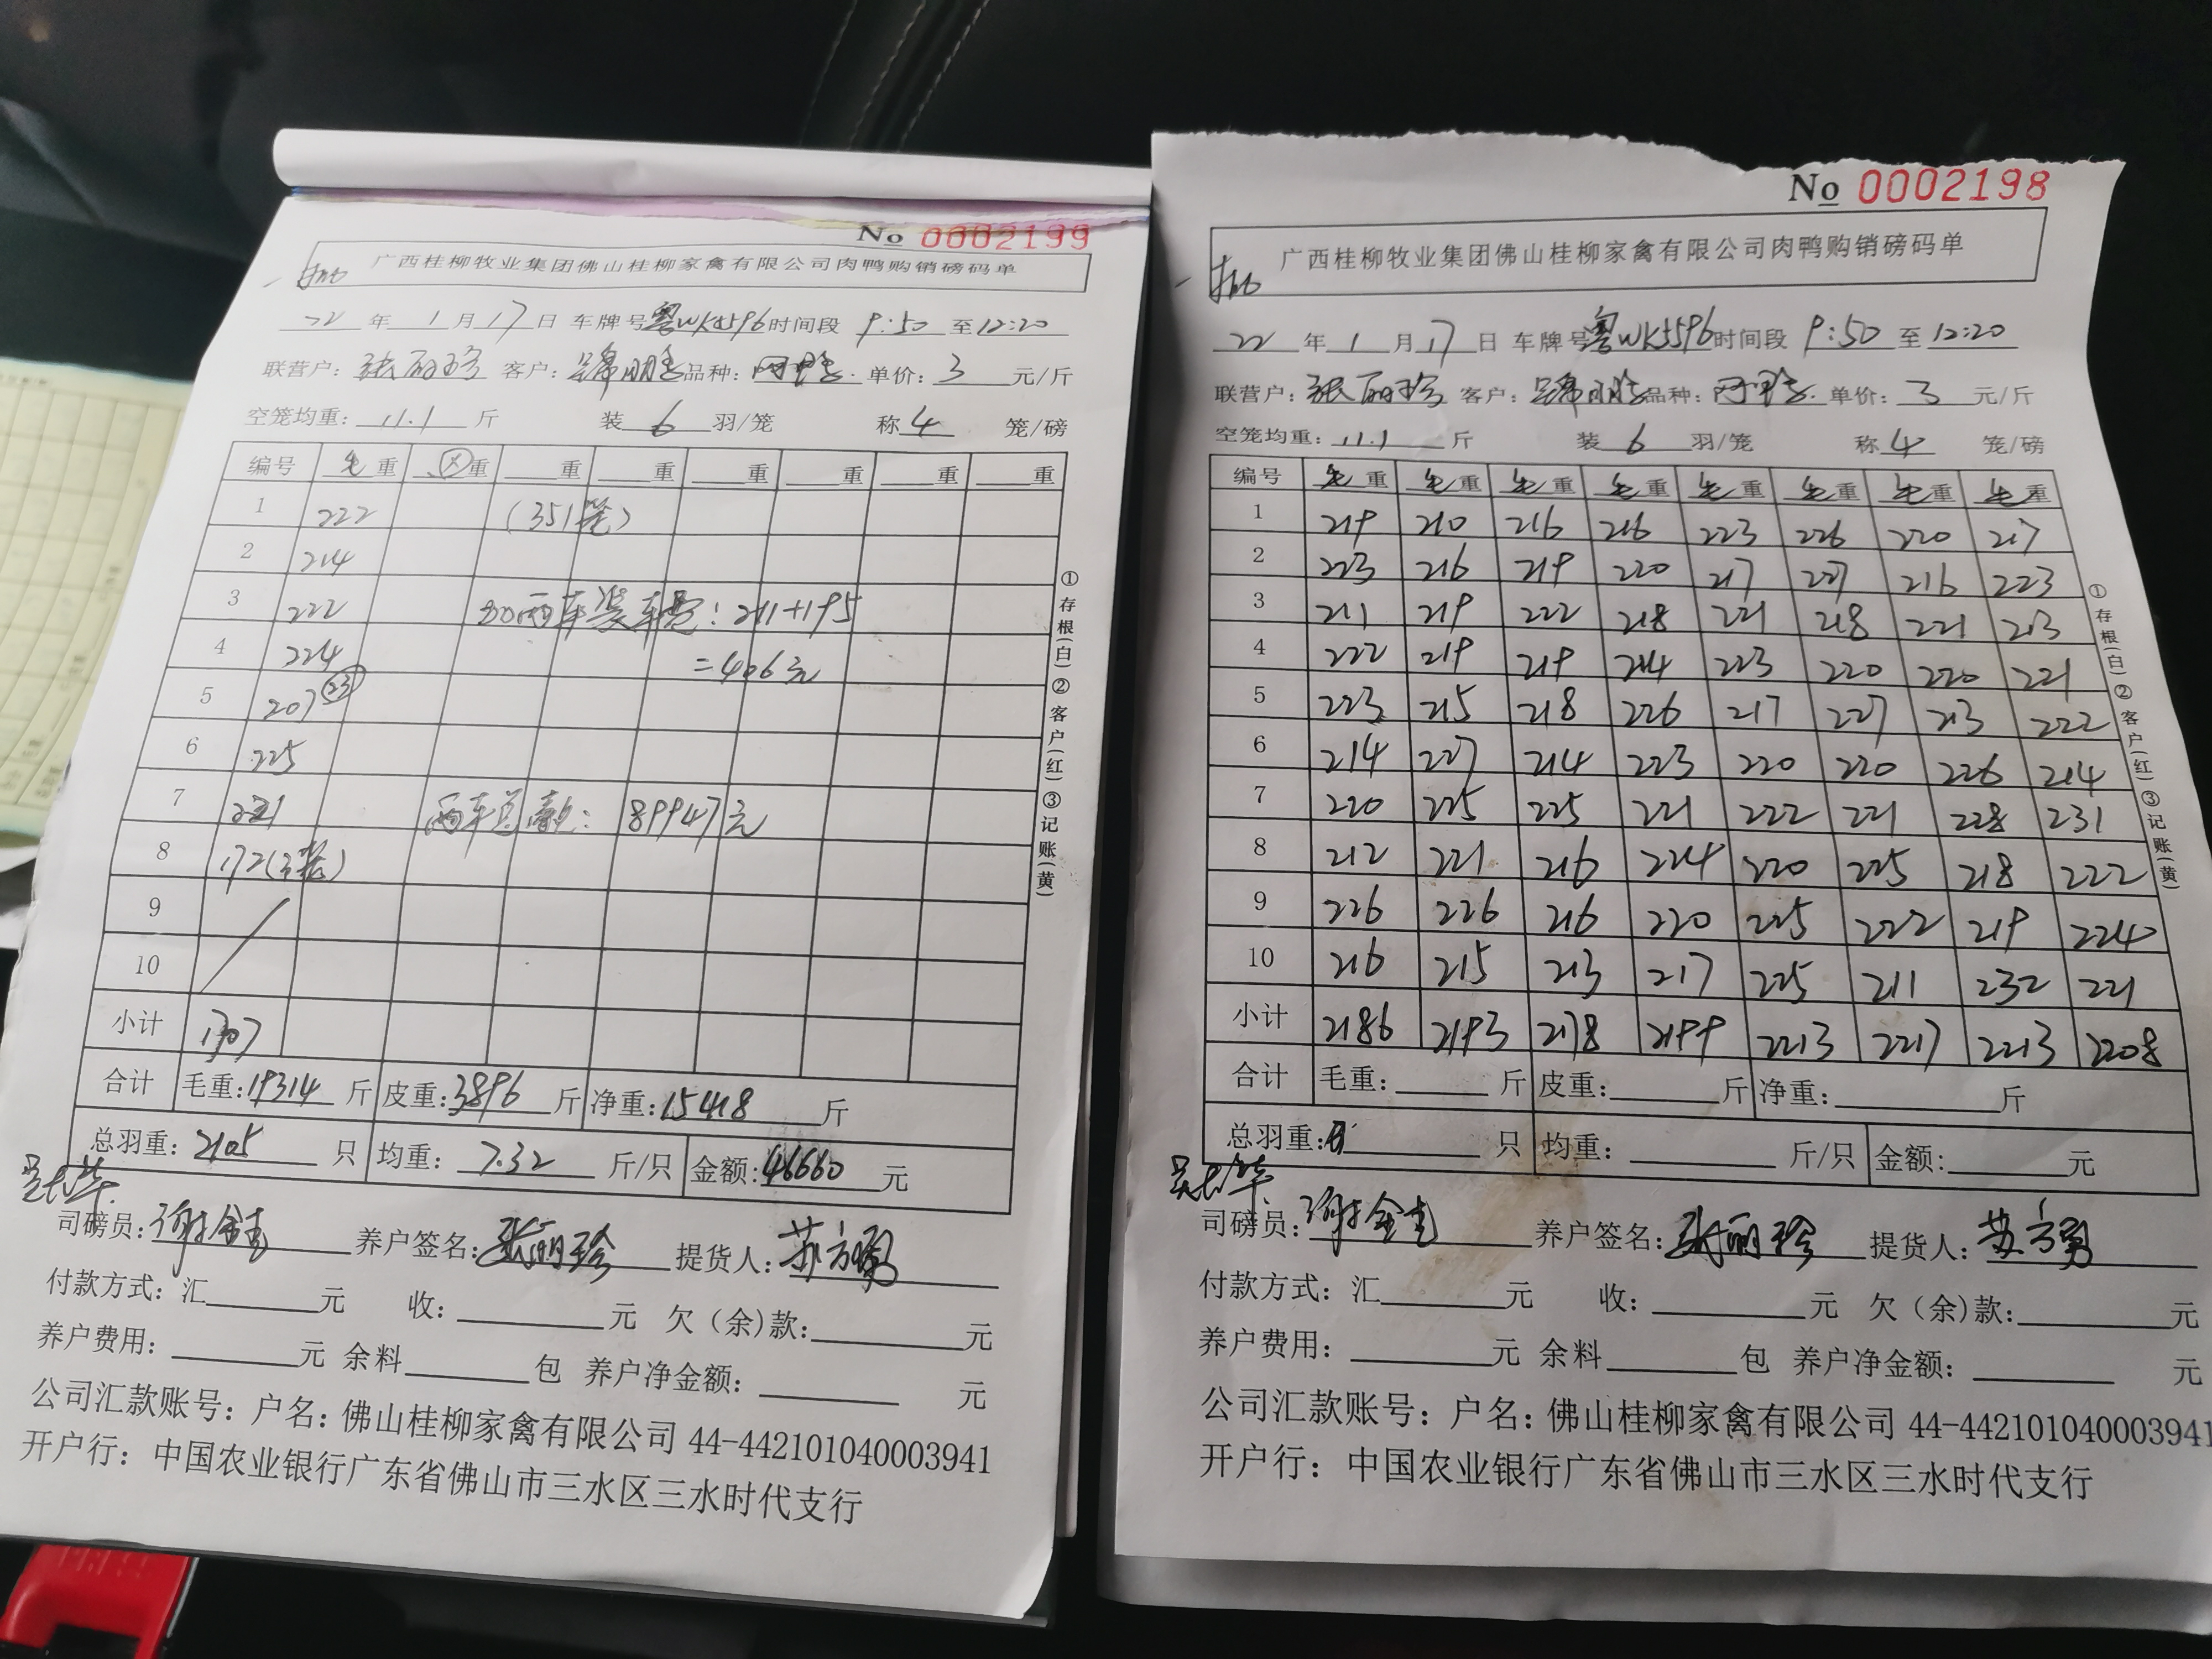 No 0002199
广西桂柳牧业集团佛山桂柳家禽有限公司肉鸭购销磅码单
22 年 1 月 17 日 车牌号 粤WK5596 时间段 9:50 至 12:20
联营户: 张丽珍 客户: 品种: 单价: 3 元/斤
空笼均重: 11.1 斤 装 6 羽/笼 称 4 笼/磅
编号 毛重 重 重 重 重 重 重 重
1 222 (351笼)
2 214
3 222 加两车装车费: 211+195
4 224 =406元
5 207 (23)
6 225
7 221 两车总款: 89947元
8 172(3笼)
9
10
小计 1707
合计 毛重: 19314 斤 皮重: 3896 斤 净重: 15418 斤
总羽重: 2105 只 均重: 7.32 斤/只 金额: 46660 元
司磅员: 谢金 养户签名: 张丽珍 提货人: 苏方勇
付款方式: 汇 元 收: 元 欠(余)款: 元
养户费用: 元 余料 包 养户净金额: 元
公司汇款账号: 户名: 佛山桂柳家禽有限公司 44-442101040003941
开户行: 中国农业银行广东省佛山市三水区三水时代支行
①存根(白)②客户(红)③记账(黄)
No 0002198
广西桂柳牧业集团佛山桂柳家禽有限公司肉鸭购销磅码单
22 年 1 月 17 日 车牌号 粤WK5596 时间段 9:50 至 12:20
联营户: 张丽珍 客户: 品种: 单价: 3 元/斤
空笼均重: 11.1 斤 装 6 羽/笼 称 4 笼/磅
编号 毛重 毛重 毛重 毛重 毛重 毛重 毛重 毛重
1 219 210 216 216 223 226 220 217
2 223 216 219 220 217 227 216 223
3 211 219 222 218 221 218 221 213
4 222 219 219 214 223 220 220 221
5 223 215 218 226 217 227 213 222
6 214 227 214 223 220 220 226 214
7 220 225 225 221 222 221 228 231
8 212 221 216 224 220 225 218 222
9 226 226 216 220 225 222 219 224
10 216 215 213 217 225 211 232 221
小计 2186 2193 2178 2199 2213 2217 2213 2208
合计 毛重: 斤 皮重: 斤 净重: 斤
总羽重: 只 均重: 斤/只 金额: 元
司磅员: 谢金 养户签名: 张丽珍 提货人: 苏方勇
付款方式: 汇 元 收: 元 欠(余)款: 元
养户费用: 元 余料 包 养户净金额: 元
公司汇款账号: 户名: 佛山桂柳家禽有限公司 44-442101040003941
开户行: 中国农业银行广东省佛山市三水区三水时代支行
①存根(白)②客户(红)③记账(黄)